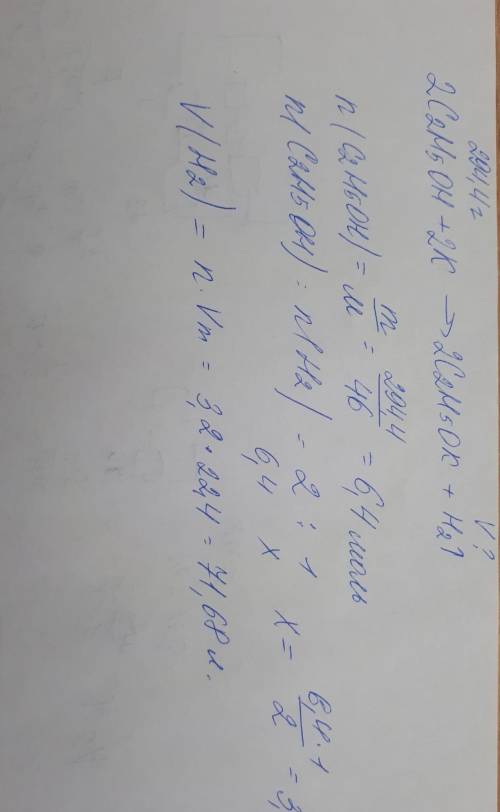 294,4г V?
2C2H5OH + 2K → 2C2H5OK + H2↑
n(C2H5OH) = m/M = 294,4/46 = 6,4 моль
n(C2H5OH) : n(H2) = 2 : 1
6,4 x x = 6,4·1/2 = 3,
V(H2) = n·Vm = 3,2·22,4 = 71,68 л.